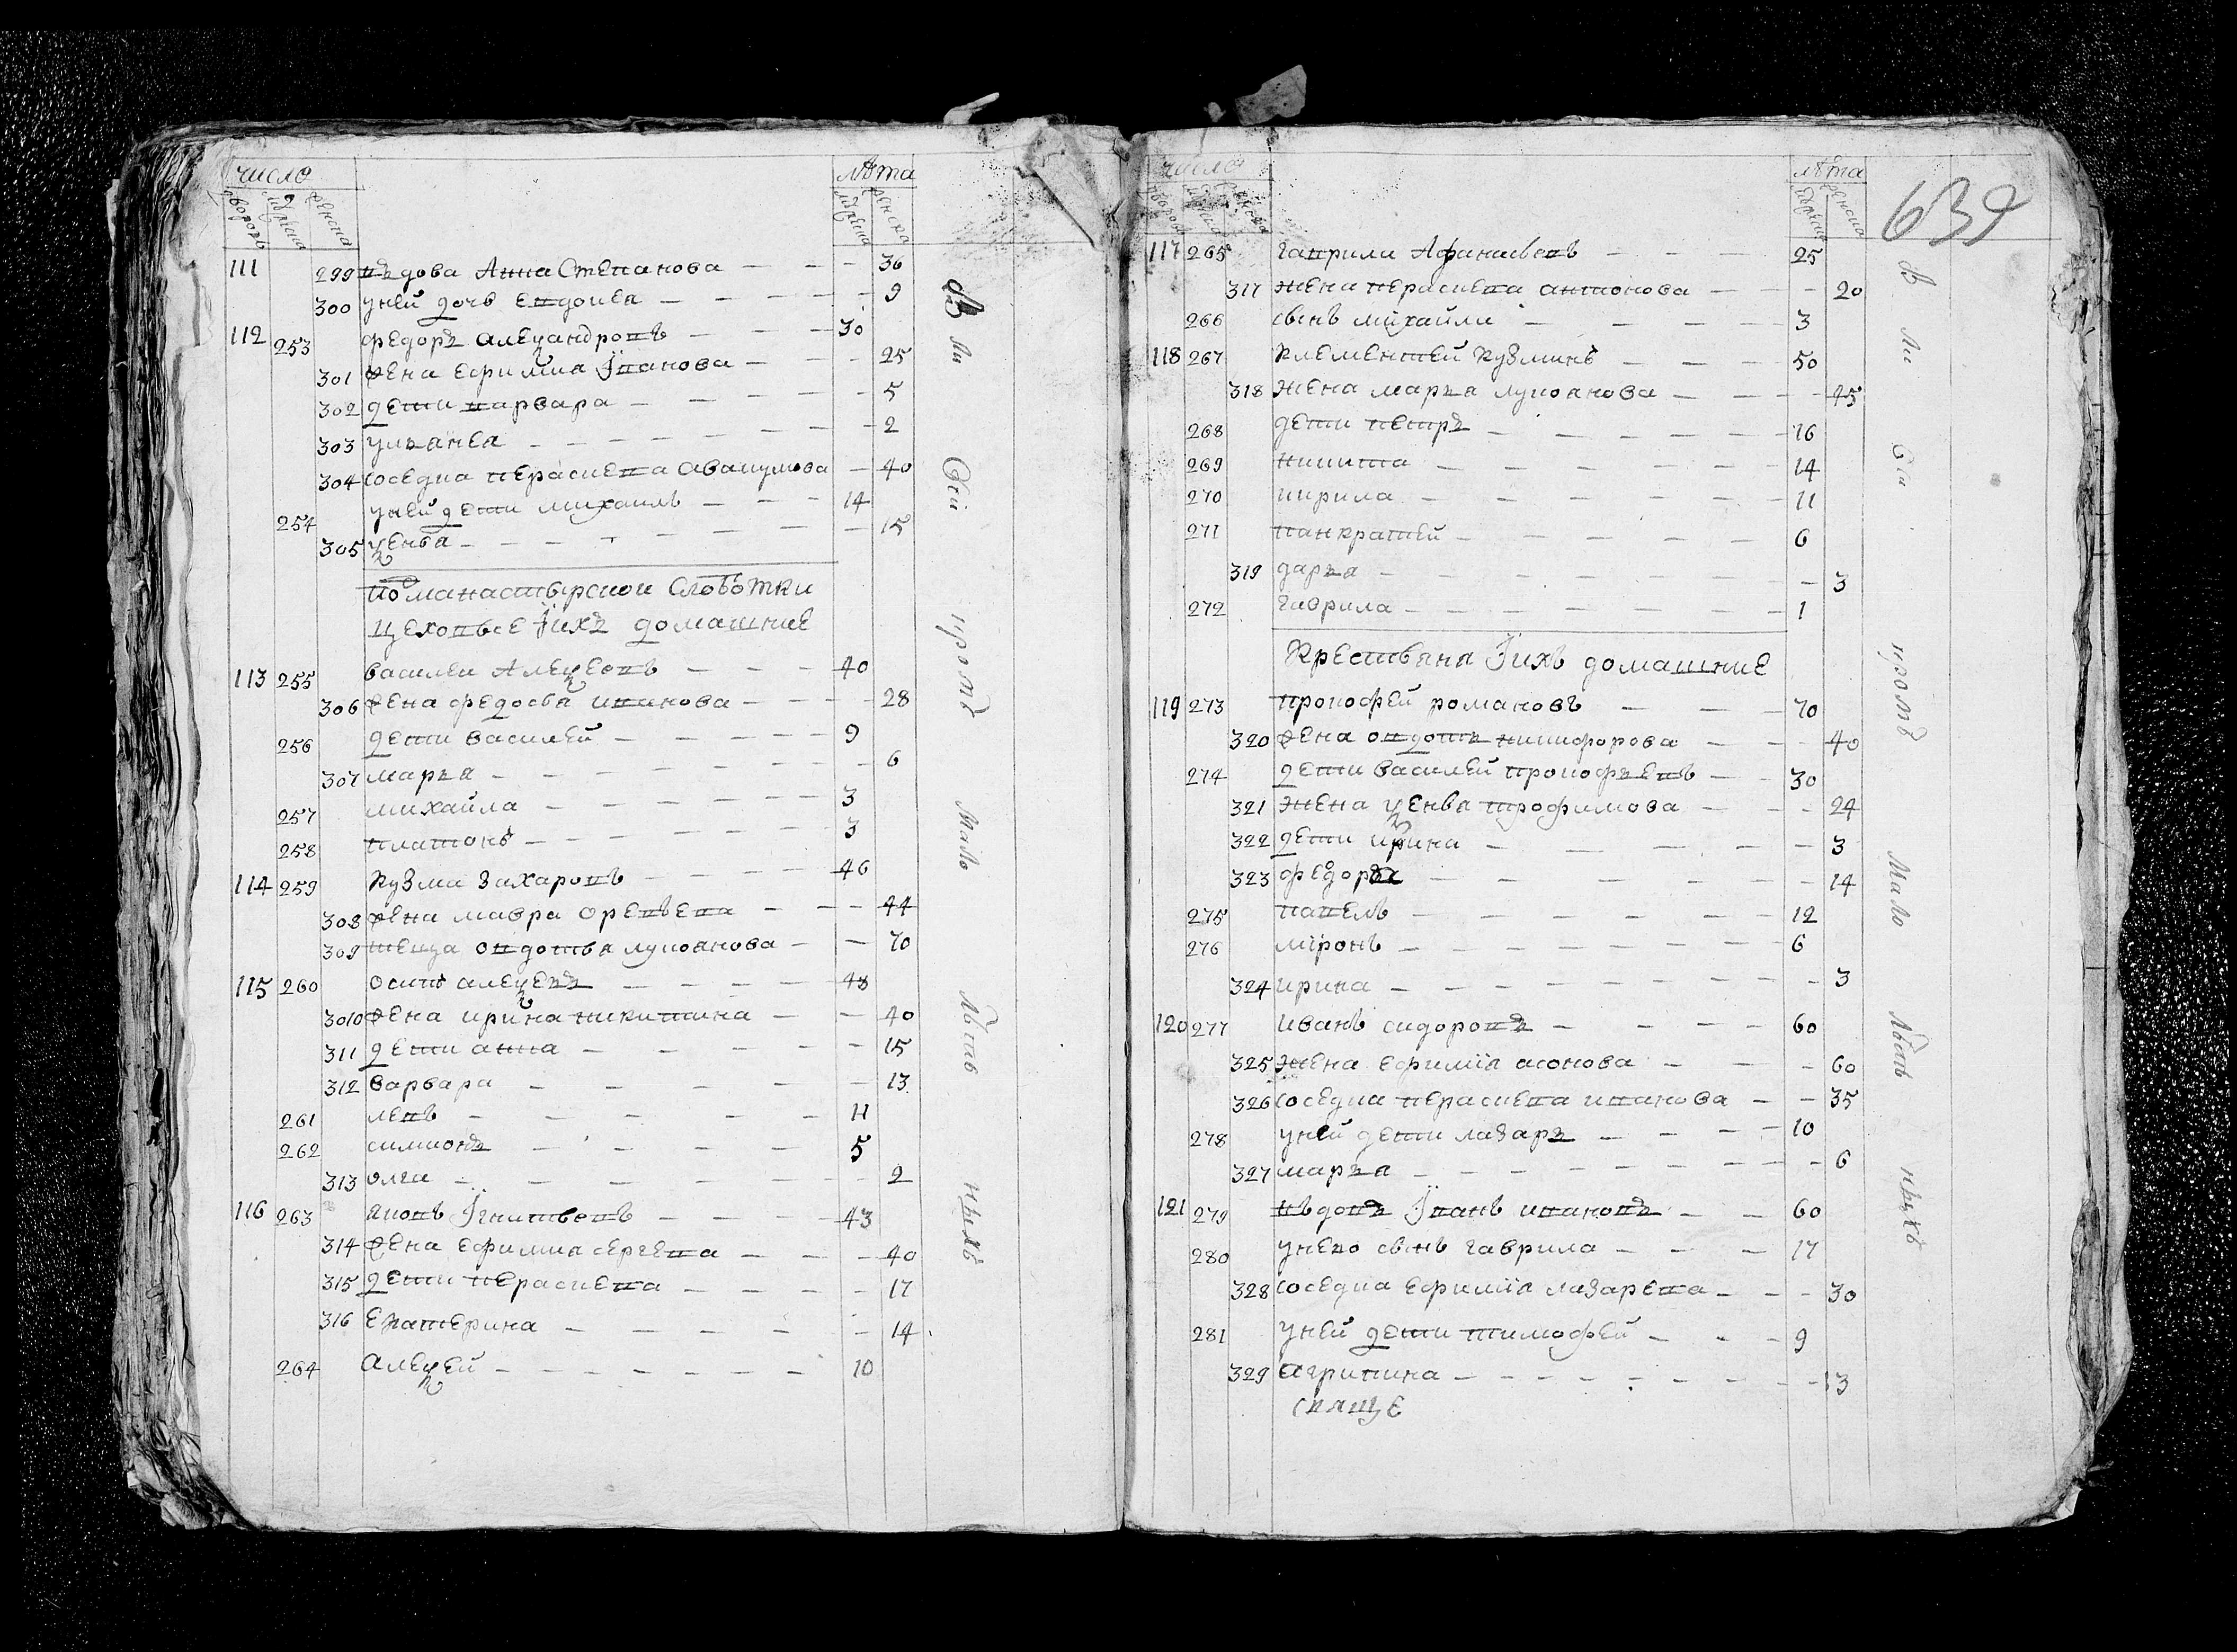 число лѣта
дворовъ мужеска женска мужеска женска
111 299 вдова Анна Степанова 36
300 уней дочь Евдокея 9
112 253 федоръ алеѯандровъ 30
301 жена ефимиа Їванова 25
302 дети варвара 5
303 ульянея 2
304 соседка пераскева авакумова 40
254 уней дети михаилъ 14
305 ѯенья 15
по манастырской слоботки
цеховые їихъ домашние
113 255 василеи алеѯеевъ 40
306 жена федосья иванова 28
256 дети василей 9
307 марья 6
257 михайла 3
258 платонъ 3
114 259 кузма захаровъ 46
308 жена мавра оревѣева 44
309 теща овдотья лукоянова 70
115 260 осипъ алеѯевъ 48
3010 жена ирина никитина 40
311 дети анна 15
312 варвара 13
261 левъ 11
262 симионъ 5
313 олга 2
116 263 яковъ Їгнатьевъ 43
314 жена ефимия сергева 40
315 дети пераскева 17
316 екатерина 14
264 алеѯей 10
В ли сей кромѣ мало лѣтъ нихъ
число лѣта
дворовъ мужеска женска мужеска женска
639
117 265 гаврила Афанасьевъ 25
317 жена пераскева антонова 20
266 сынъ михайла 3
118 267 клементей кузминъ 50
318 жена марья лукоянова 45
268 дети петръ 16
269 никита 14
270 кирила 11
271 панкратей 6
319 дарья 3
272 гаврила 1
крестьяна їихъ домашние
119 273 прокофей романовъ 70
320 жена овдотъ никифорова 40
274 дети василей прокофьевъ 30
321 жена ѯенья трофимова 24
322 дети ирина 3
323 федора 14
275 павелъ 12
276 міронъ 6
324 ирина 3
120 277 иванъ сидоровъ 60
325 жена ефимїя асонова 60
326 соседка пераскева иванова 35
278 уней дети лазаръ 10
327 марья 6
121 279 вдовъ Їванъ ивановъ 60
280 унего сынъ гаврила 17
328 соседка ефимїя лазарева 30
281 уней дети тимофей 9
329 агрипина 13
В ли сей кромѣ мало лѣтъ нихъ